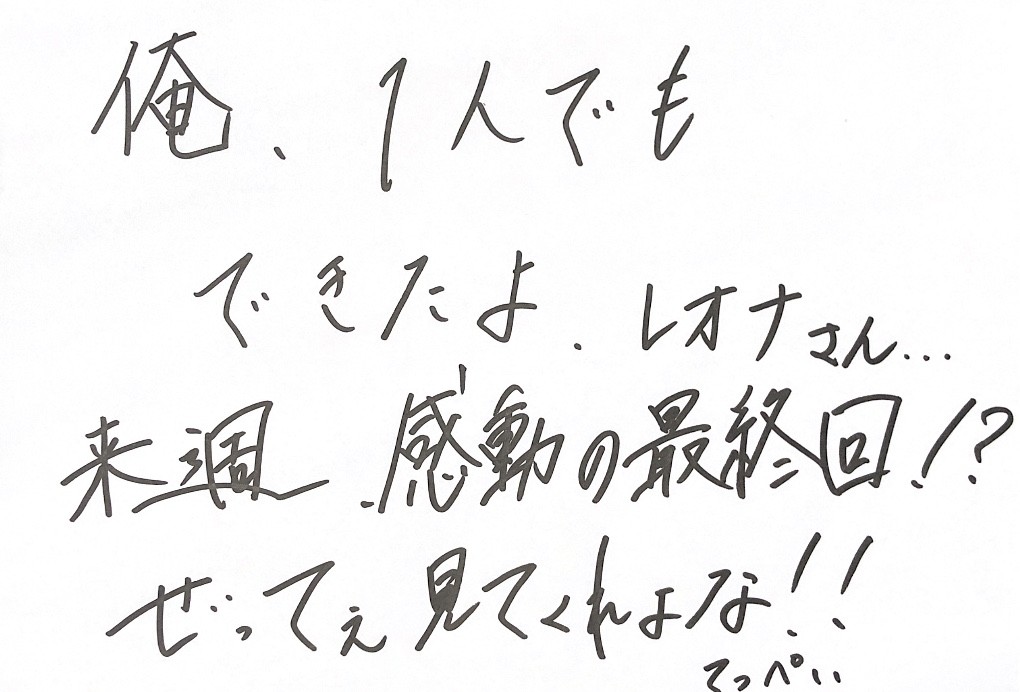 俺、1人でも
できたよ.レオナさん...
来週.感動の最終回!?
ぜってぇ見てくれよな!!
てっぺい